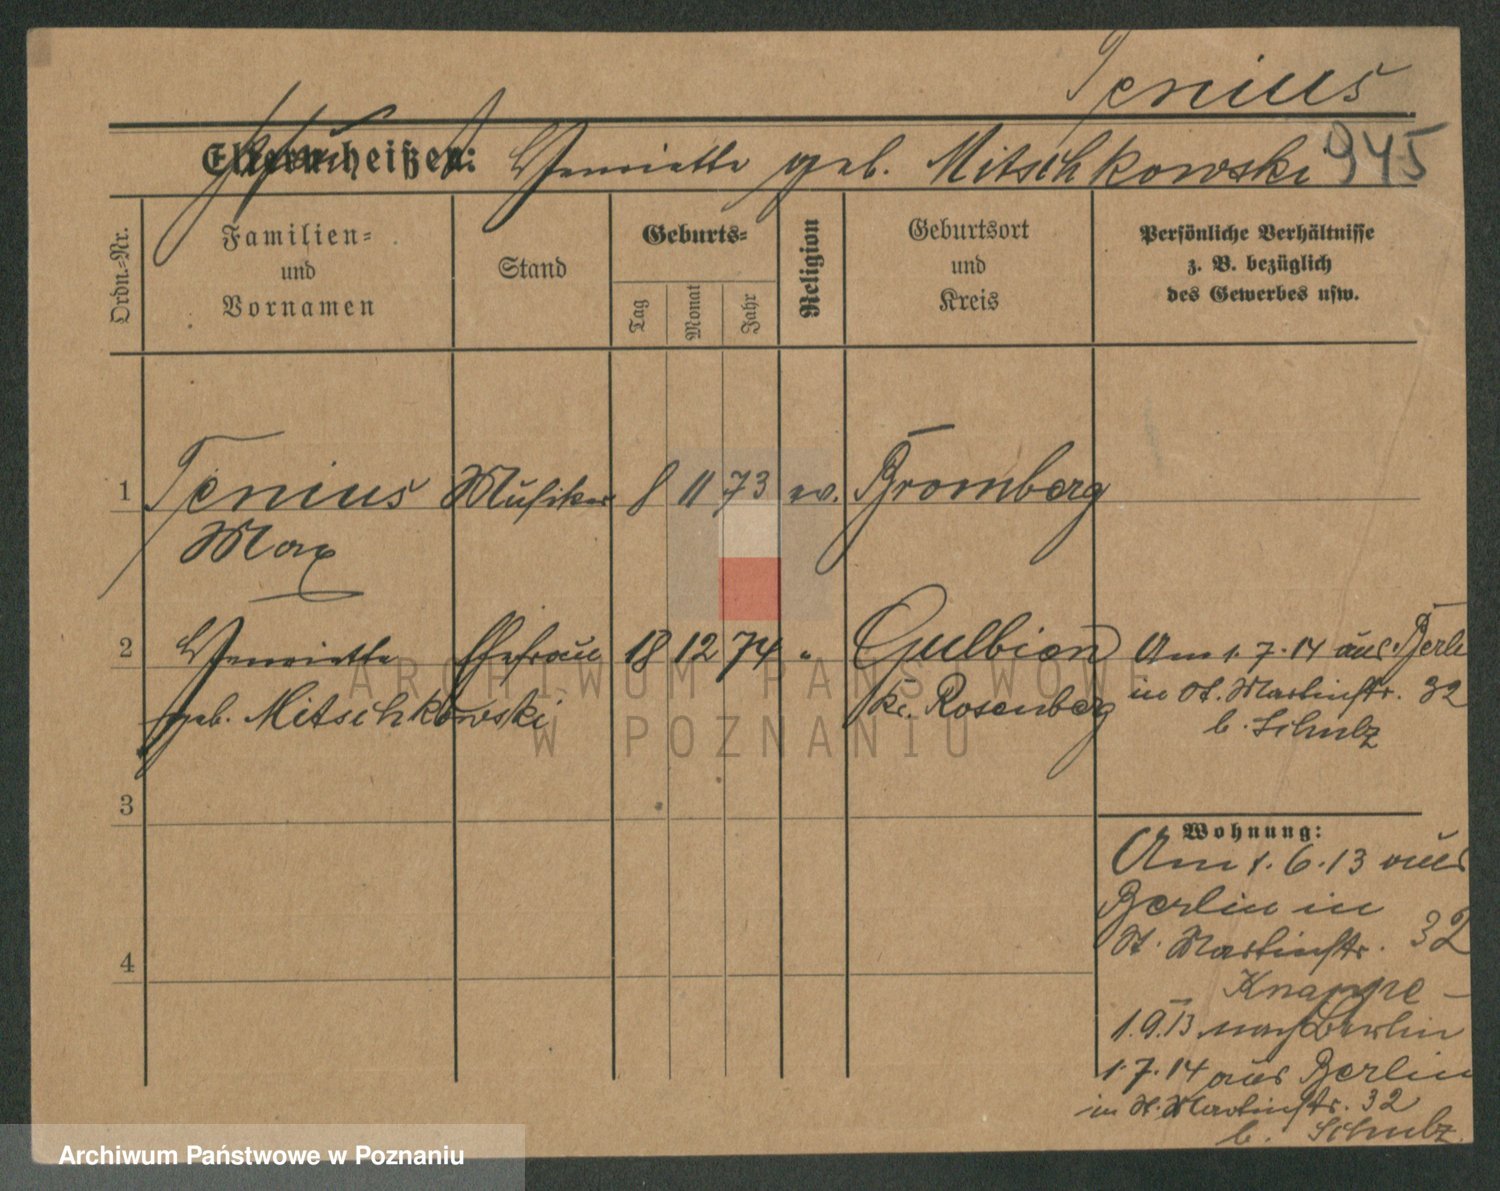 Tenius
Eltern heißen: Henriette geb. Mitschkowski 945
Ordn.-Nr.
Familien-
und
Vornamen
Stand
Geburts-
Tag
Monat
Jahr
Religion
Geburtsort
und
Kreis
Persönliche Verhältnisse
z. B. bezüglich
des Gewerbes usw.
1 Tenius Musiker 8 11 73 ev. Bromberg
Max
2 Henriette Ehefrau 18 12 74 " Gulbien Am 1.7.14 aus Berlin
geb. Mitschkowski Kr. Rosenberg in St. Martinstr. 32
b. Schulz
3
4
Wohnung:
Am 1.6.13 aus
Berlin in
St. Martinstr. 32
Knappe -
1.9.13 nach Berlin
1.7.14 aus Berlin
in St. Martinstr. 32
b. Schulz
ARCHIWUM PAŃSTWOWE
W POZNANIU
Archiwum Państwowe w Poznaniu